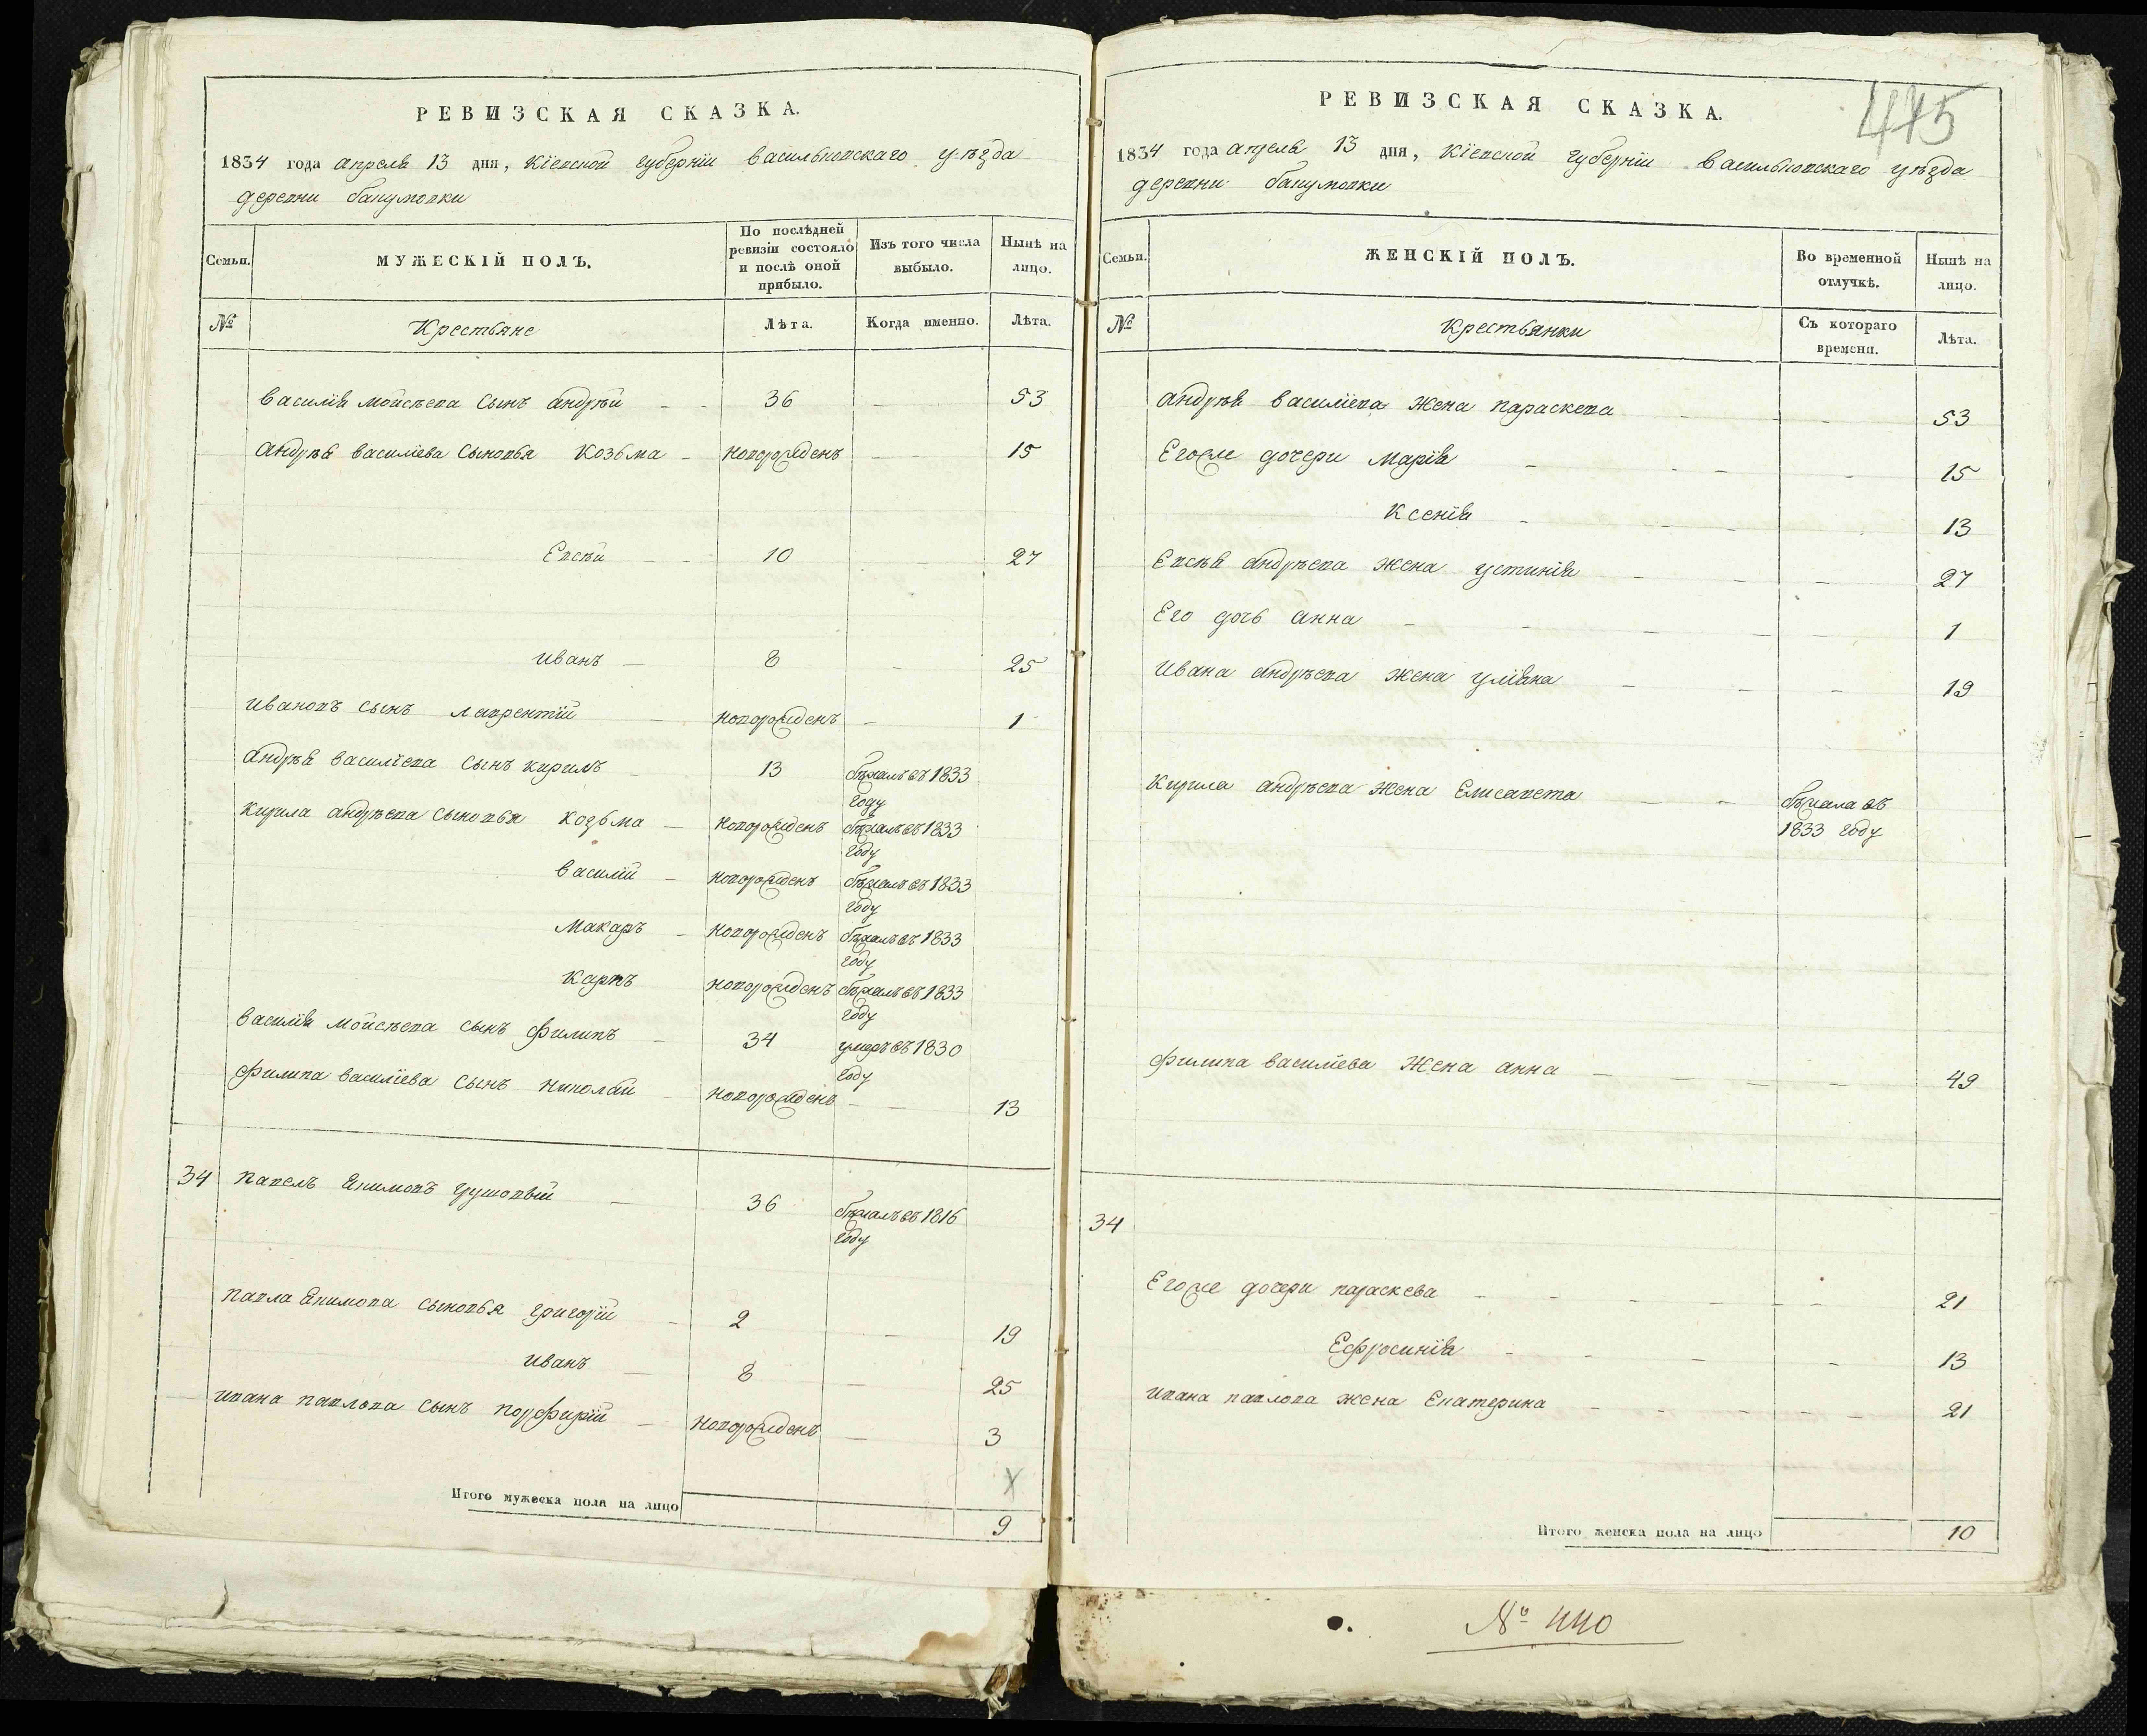 РЕВИЗСКАЯ СКАЗКА.
1834 года апреля 13 дня, Кіевской губерніи Васильковскаго уѣзда
деревни
Семьи.
МУЖЕСКІЙ ПОЛЪ.
По послѣдней ревизіи состояло и послѣ оной прибыло.
Изъ того числа выбыло.
Нынѣ на лицо.
№
Крестьяне
Лѣта.
Когда именно.
Лѣта.
Василія Мойсѣева сынъ Андрѣй 36 53
Андрѣя Василіева сыновья Козьма новорожденъ 15
Евсѣй 10 27
Иванъ 8 25
Ивановъ сынъ Лаврентій новорожденъ 1
Андрѣя Василіева сынъ Кирилъ 13 бѣжалъ въ 1833
году
Кирила Андрѣева сыновья Козьма новорожденъ бѣжалъ въ 1833
году
Василій новорожденъ бѣжалъ въ 1833
году
Макаръ новорожденъ бѣжалъ въ 1833
году
Карпъ новорожденъ бѣжалъ въ 1833
году
Василія Мойсѣева сынъ Филипъ 34 умеръ въ 1830
году
Филипа Василіева сынъ Николай новорожденъ 13
34 Павелъ Якимовъ 36 бѣжалъ въ 1816
году
Павла Якимова сыновья Григорій 2 19
Иванъ 8 25
Ивана Павлова сынъ Порфирій новорожденъ 3
Х
Итого мужеска пола на лицо 9
475
РЕВИЗСКАЯ СКАЗКА.
1834 года апреля 13 дня, Кіевской губерніи Васильковскаго уѣзда
деревни
Семьи.
ЖЕНСКІЙ ПОЛЪ.
Во временной отлучкѣ.
Нынѣ на лицо.
№
Крестьянки
Съ котораго времени.
Лѣта.
Андрѣя Василіева жена Параскева 53
Егоже дочери Марія 15
Ксенія 13
Евсѣя Андрѣева жена Устинія 27
Его дочь Анна 1
Ивана Андрѣева жена Уліяна 19
Кирила Андрѣева жена Елисавета бѣжала въ
1833 году
Филипа Василіева жена Анна 49
34
Егоже дочери Параскева 21
Ефросинія 13
Ивана Павлова жена Екатерина 21
Итого женска пола на лицо 10
№ 440